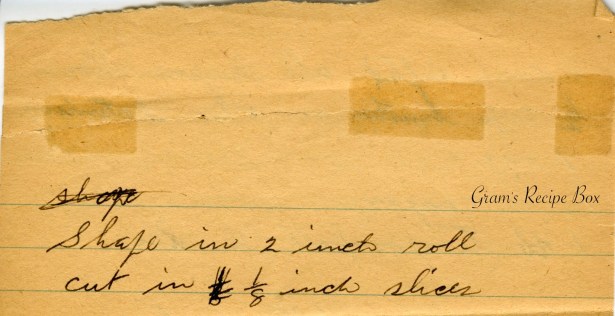 shape
Gram's Recipe Box
Shape in 2 inch roll
cut in 1/8 inch slices